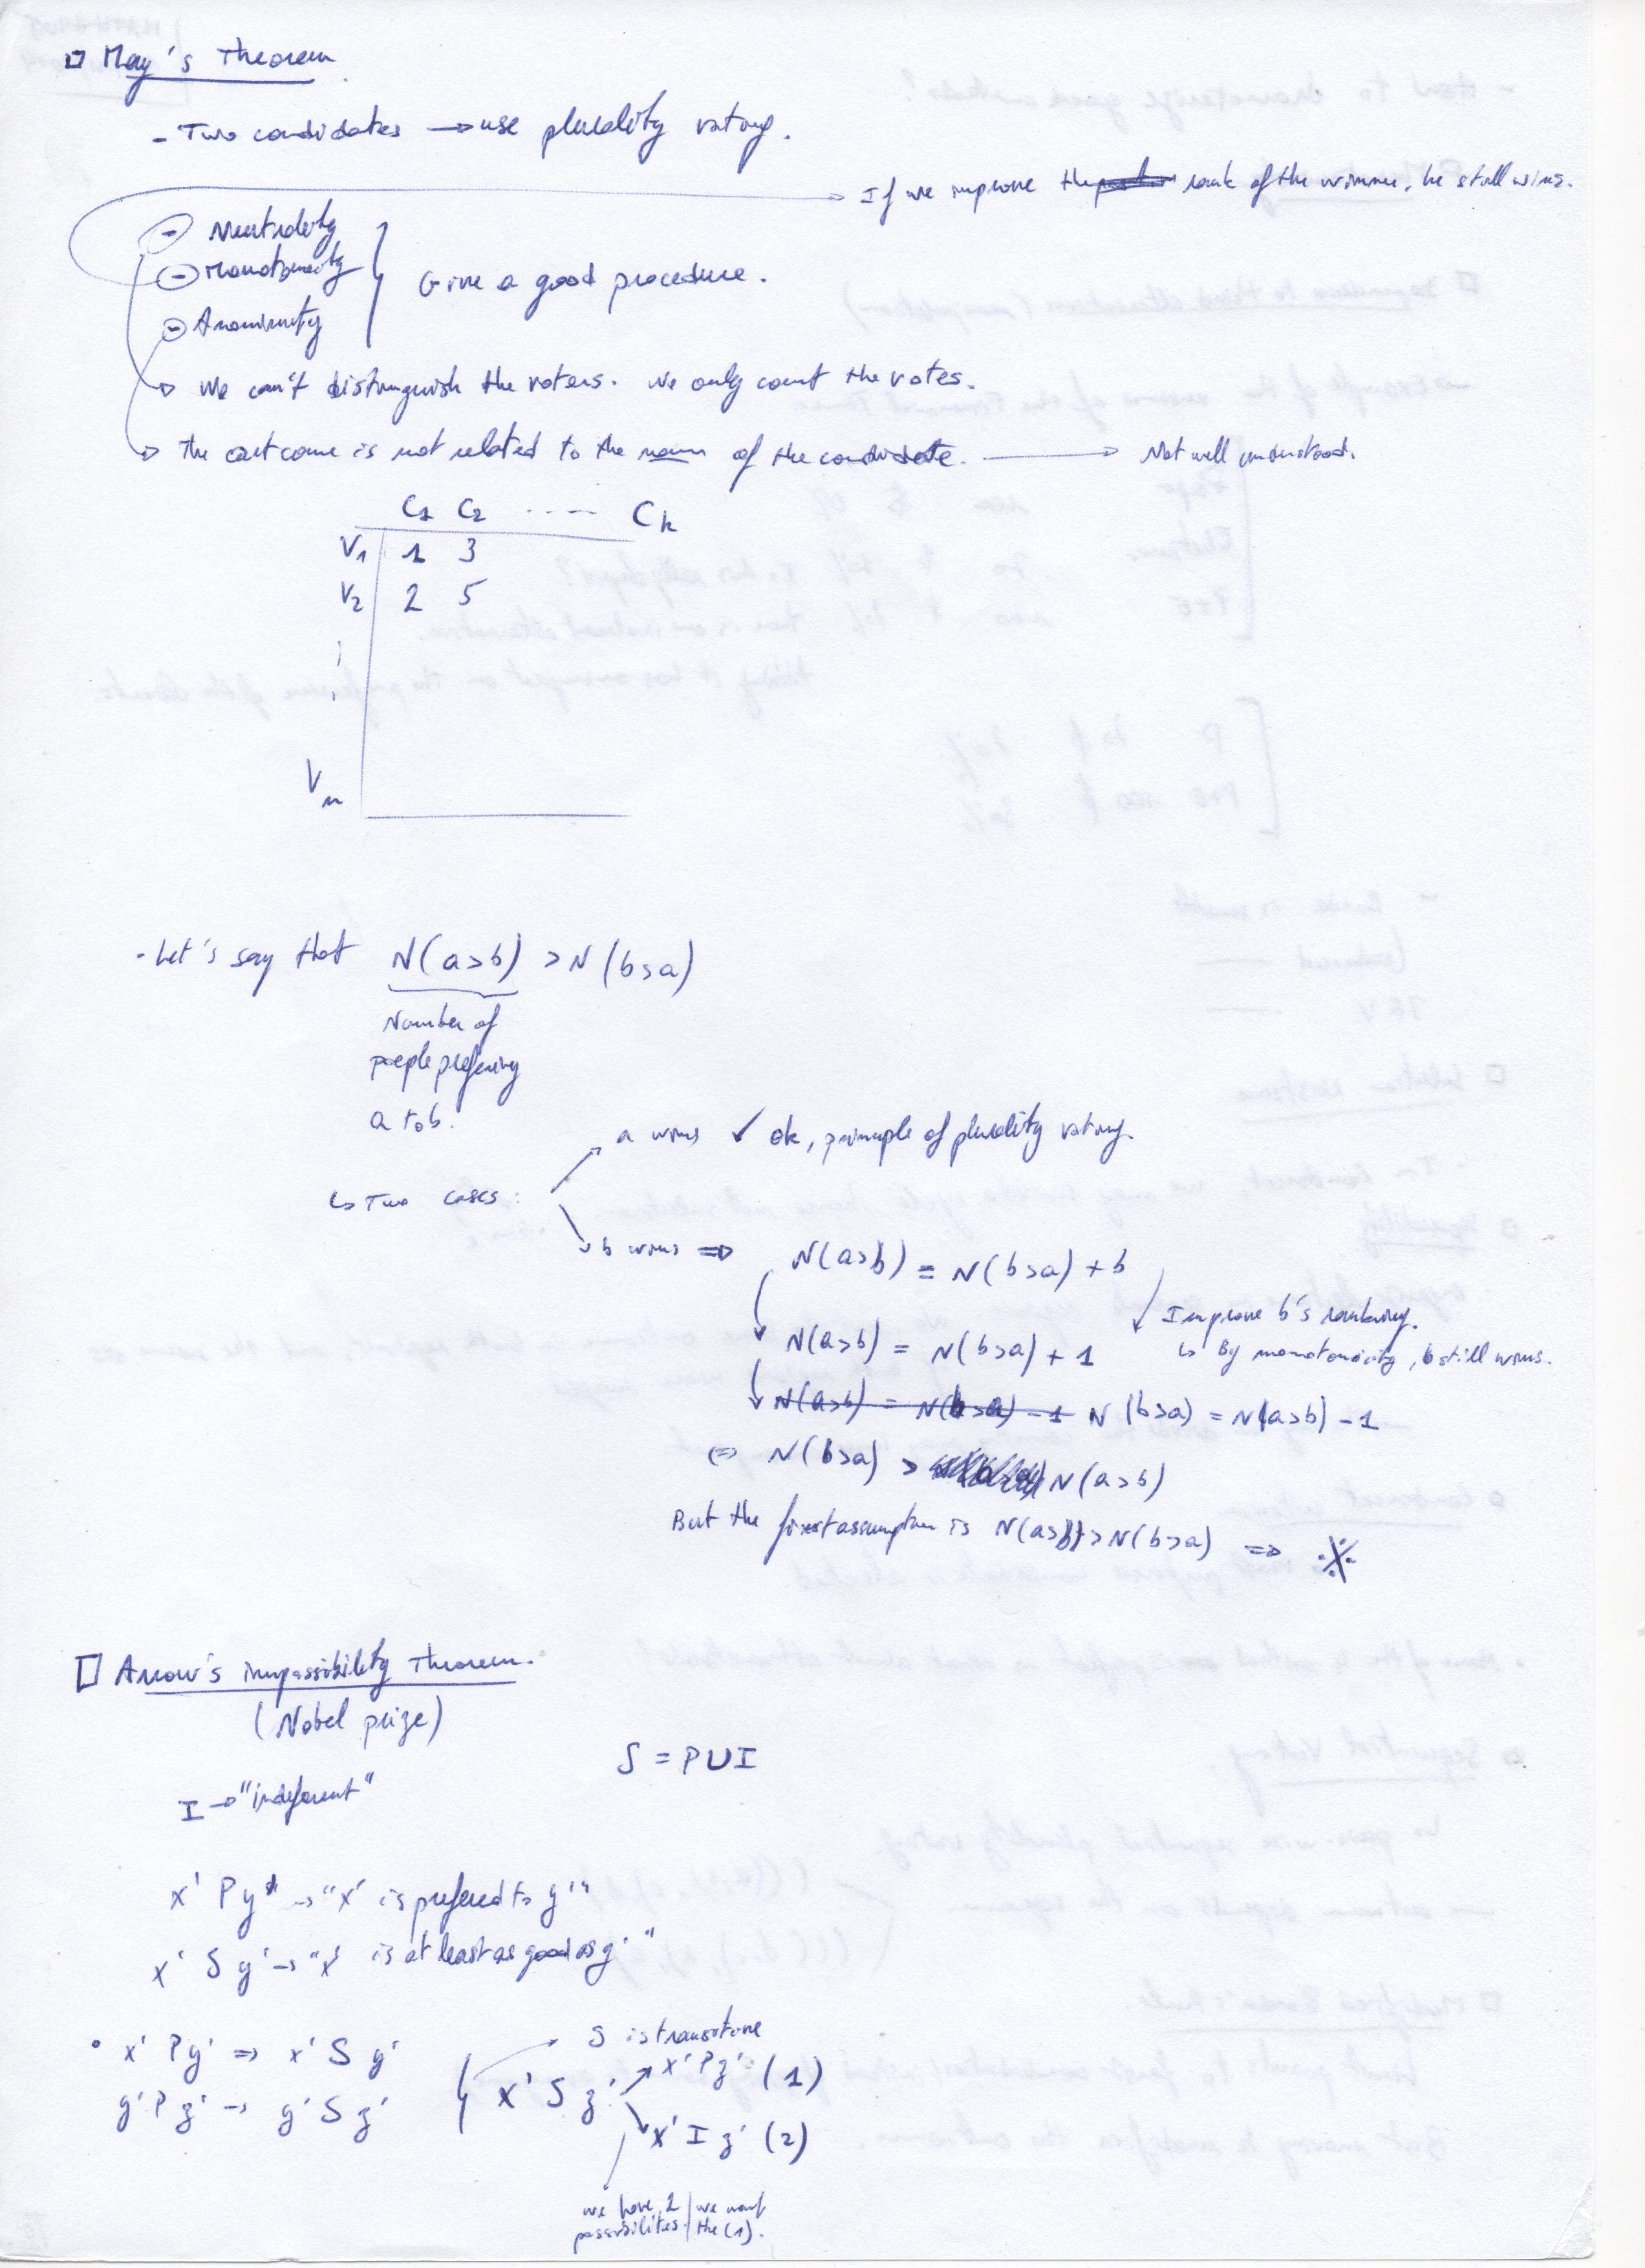 □ May's Theorem
- Two candidates → use plurality voting.
→ If we improve the rank of the winner, he still wins.
- Neutrality
- Monotonicity
- Anonimity
} Give a good procedure.
→ We can't distinguish the voters. We only count the votes.
→ The outcome is not related to the name of the candidate. → Not well understood.
C1 C2 ---- Ck
V1 1 3
V2 2 5
Vn
- Let's say that N(a>b) > N(b>a)
Number of
people prefering
a to b.
a wins ✓ ok, principle of plurality voting.
↳ Two cases:
b wins ⇒ N(a>b) = N(b>a) + b
Improve b's ranking.
N(a>b) = N(b>a) + 1
↳ By monotonicity, b still wins.
N(a>b) = N(b>a) - 1 N(b>a) = N(a>b) - 1
⇔ N(b>a) > N(a>b)
But the first assumption is N(a>b) > N(b>a) ⇒ ※
□ Arrow's impossibility Theorem.
(Nobel prize)
S = P U I
I → "indeferent"
x' P y' → "x' is prefered to y'"
x' S y' → "x' is at least as good as y'"
S is transitive
• x' P y' ⇒ x' S y'
x' P z' (1)
y' P z' → y' S z'
} x' S z'
x' I z' (2)
we have 2 | we want
possibilites | the (1).